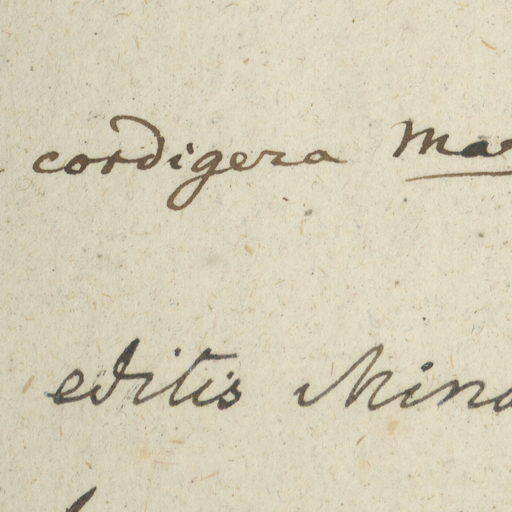 cordigera Ma
editis Mina